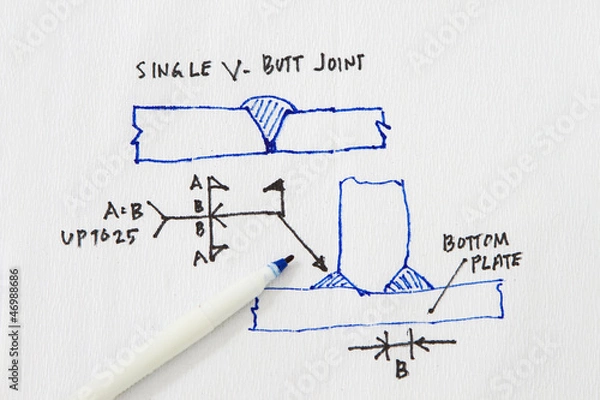 SINGLE V- BUTT JOINT
A
B
A=B
B
UP TO 25
A
BOTTOM
PLATE
B
Adobe Stock
46988686